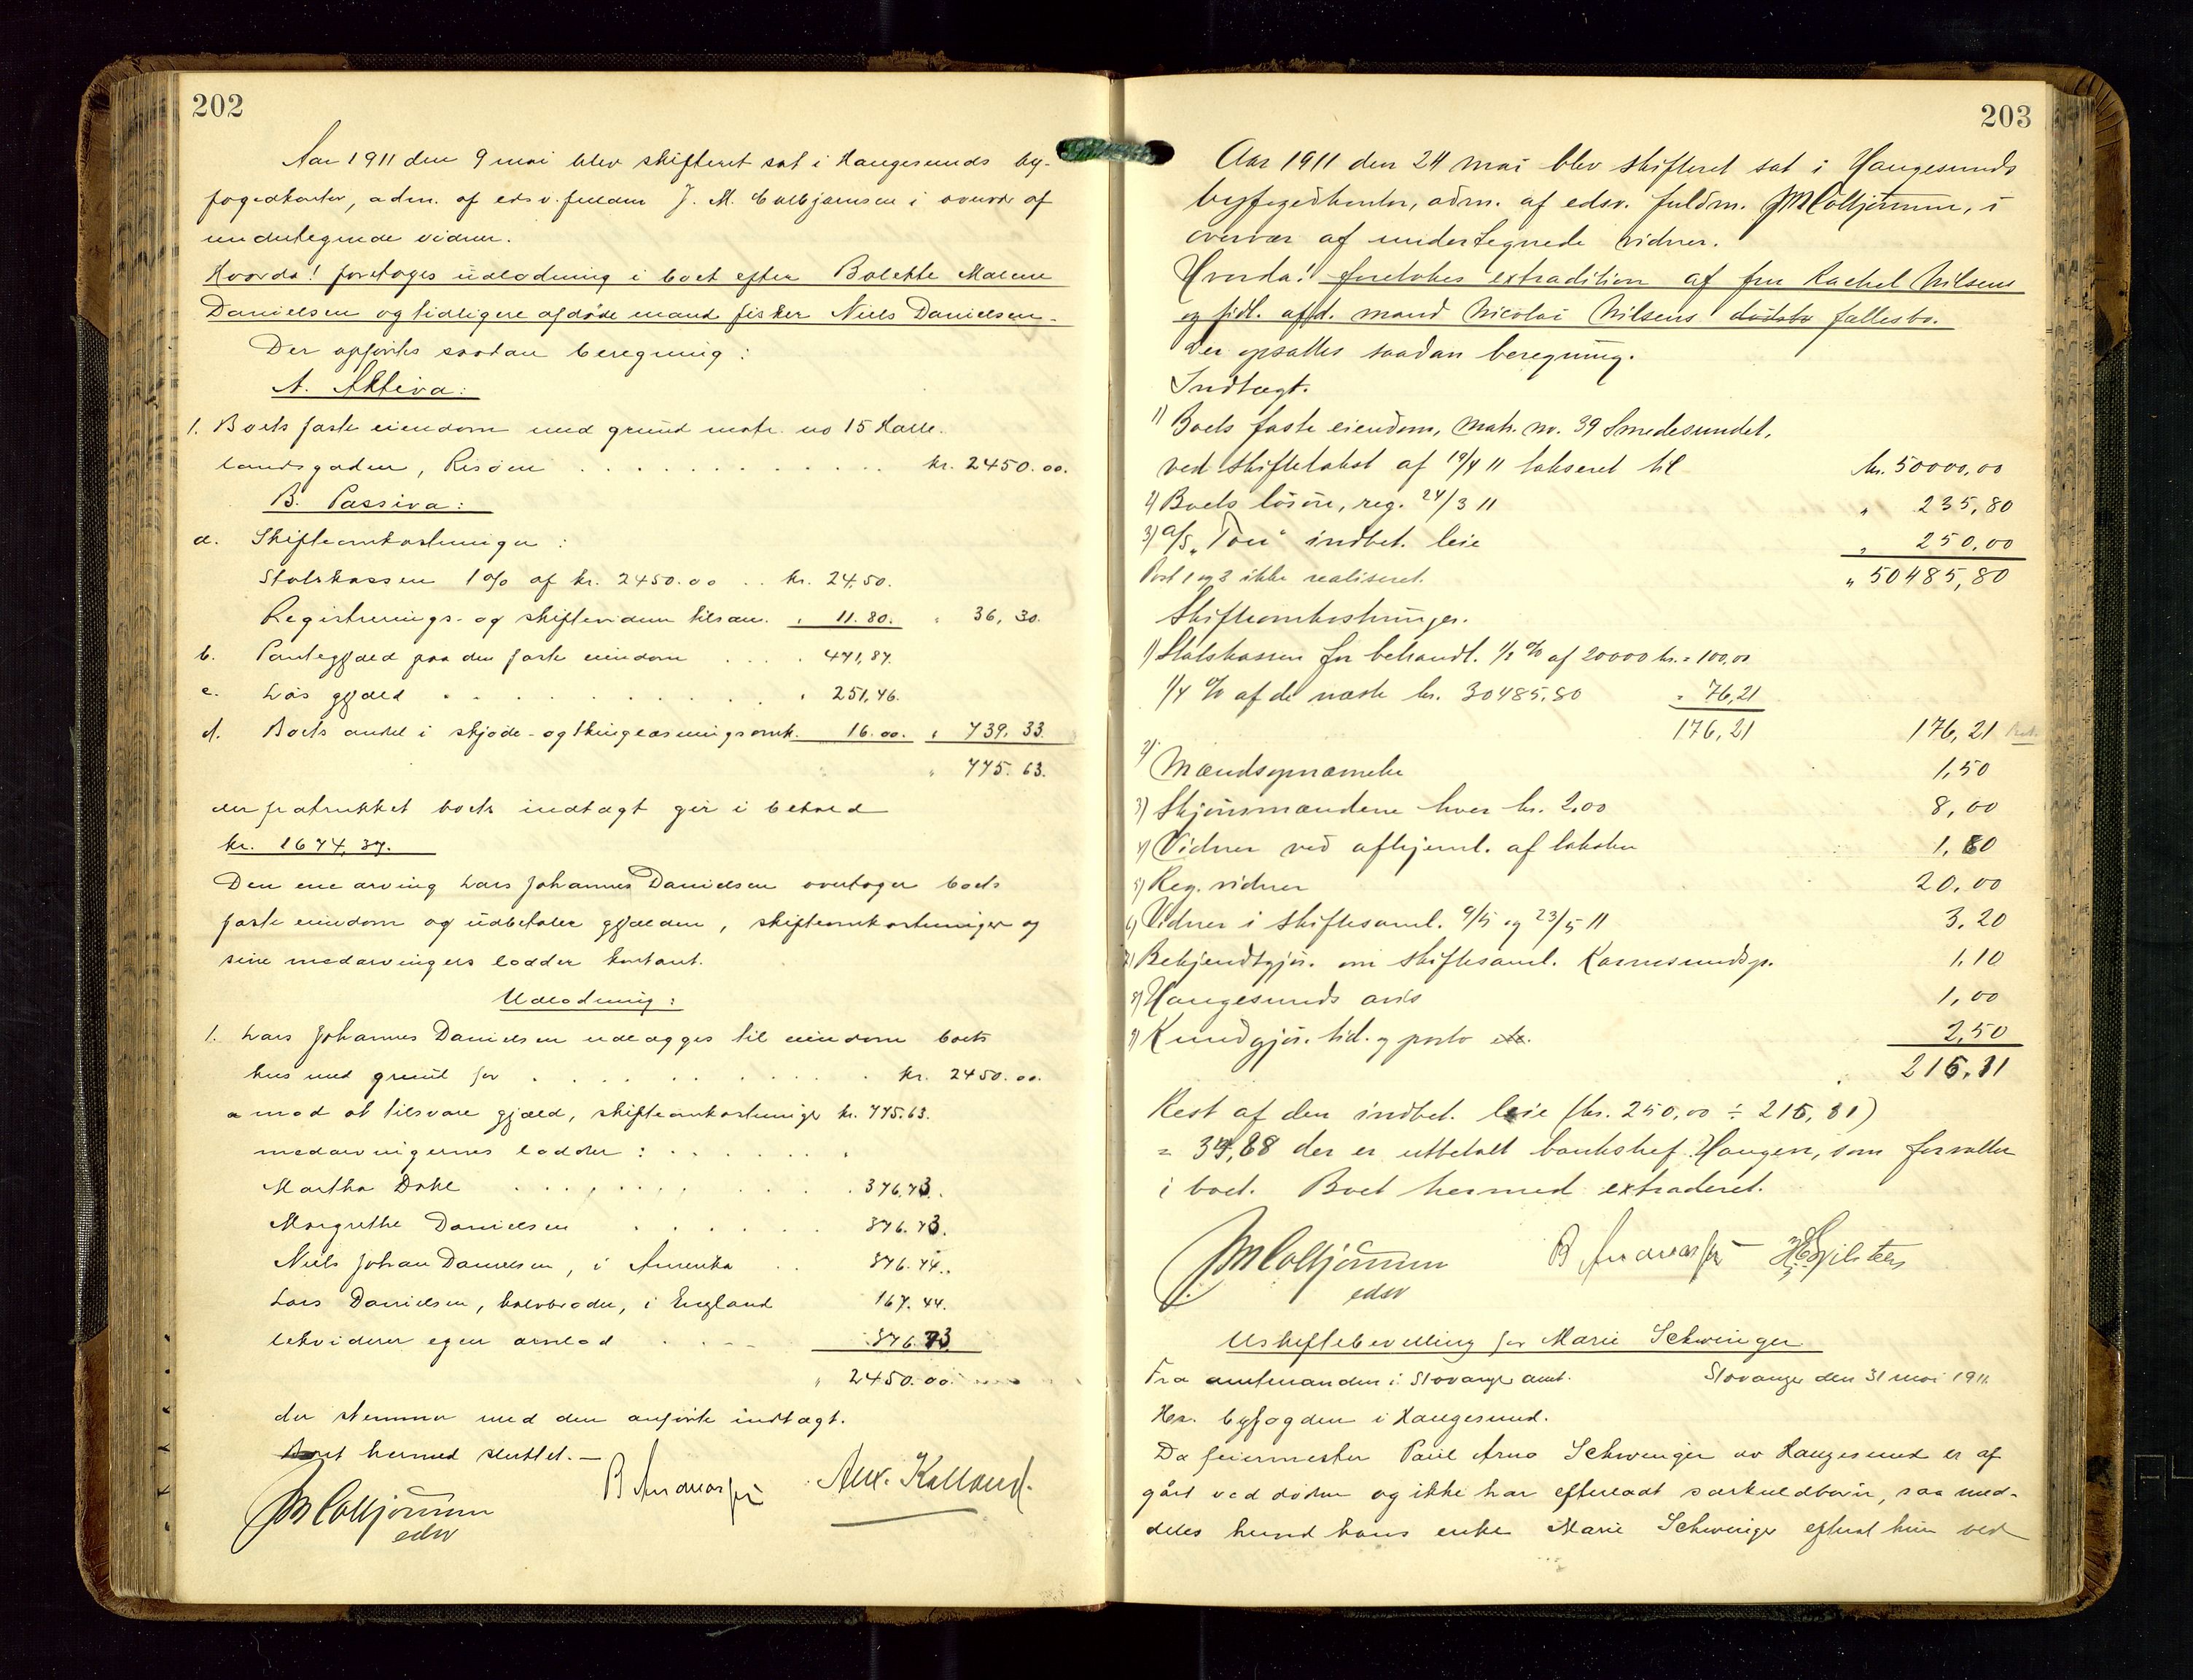 202
Aar 1911 den 9 mai blev skifteret sat i Haugesunds by-
fogedkontor, adm. af edsv. fuldm J. M. Colbjørnsen i overvær af
undertegnede vidner.
Hvorda! foretoges udlodning i boet efter Bolette Malene
Danielsen og tidligere afdøde mand fisker Niels Danielsen.
Der opførtes saadan beregning:
A. Aktiva:
1. Boets faste eiendom med grund matr. no 15 Halle-
landsgaden, Risøen . . . kr. 2450.00.
B. Passiva:
a. Skifteomkostninger:
Statskassen 1% af kr. 2450.00 . . kr. 24,50.
Registrerings- og skiftevidner tilsam. " 11.80. " 36,30.
b. Pantegjæld paa den faste eiendom . . . 471,87.
c. Løs gjæld . . . " 251,46.
d. Boets andel i skjøde- og thinglæsningsomk. 16.00. " 739.33
" 775.63.
der fratrukket boets indtægt gir i behold
kr. 1674,37.
Den ene arving Lars Johannes Danielsen overtager boets
faste eiendom og udbetaler gjælden, skifteomkostninger og
sine medarvingers lodder kontant.
Udlodning:
1. Lars Johannes Danielsen udlægges til eiendom boets
hus med grund for . . . kr. 2450.00.
mod at tilsvare gjæld, skifteomkostninger kr. 775.63.
medarvingernes lodder: . . .
Martha Dahl . . . 376.73.
Margrethe Danielsen . . . 376.73.
Niels Johan Danielsen, i Amerika . . 376.74.
Lars Danielsen, halvbroder, i England 167.44.
likviderer egen arvelod . . . 376.73
" 2450.00.
der stemmer med den anførte indtægt.
Boet hermed sluttet.—
JMColbjørnsen
edsv
B Andreassen
Alex. Kalland.
203
Aar 1911 den 24 mai blev skifteret sat i Haugesunds
byfogedkontor, adm. af edsv. fuldm. JMColbjørnsen, i
overvær af undertegnede vidner.
Hvorda! foretokes extradition af fru Rachel Nilsens
og tidl. afd. mand Nicolai Nilsens dødsbo fællesbo.
Der opsattes saadan beregning.
Indtægt.
1) Boets faste eiendom, matr. no. 39 Smedesundet,
ved skiftetakst af 19/4 11 takseret til kr. 50000,00
2) Boets løsøre, reg. 24/3 11 " 235,80
3) A/S "Tou" indbet. leie " 250,00
Post 1 og 2 ikke realiseret. " 50485,80
Skifteomkostninger.
1) Statskassen for behandl. 1/2 % af 20000 kr. = 100,00
1/4 % af de næste kr. 30485,80 = 76,21
176,21 176,21
2) Mændsopnævnelse 1,50
3) Skjønsmændene hver kr. 2,00 8,00
4) Vidner ved afhjeml. af taksten 1,80
5) Reg. vidner 20,00
6) Vidner i skiftesaml. 9/5 og 23/5 11 3,20
7) Bekjendtgjør. om skiftesaml. Karmsundsp. 1,10
8) Haugesunds avis 1,00
9) Kundgjør. tid. og porto etc. 2,50
215,31
Rest af den indbet. leie (kr. 250,00 ÷ 215,31)
= 34,68 der er utbetalt bankchef Haugen, som forvalter
i boet. Boet hermed extraderet.
JMColbjørnsen
edsv
B Andreassen
Uskiftebevilling for Marie Schwinger
Fra amtmanden i Stavanger amt. Stavanger den 31 mai 1911.
Hr. byfogden i Haugesund.
Da feiermester Paul Arno Schwinger av Haugesund er af
gået ved døden og ikke har efterladt særkuldbørn, saa med-
deles herved hans enke Marie Schwinger efterat hun ved